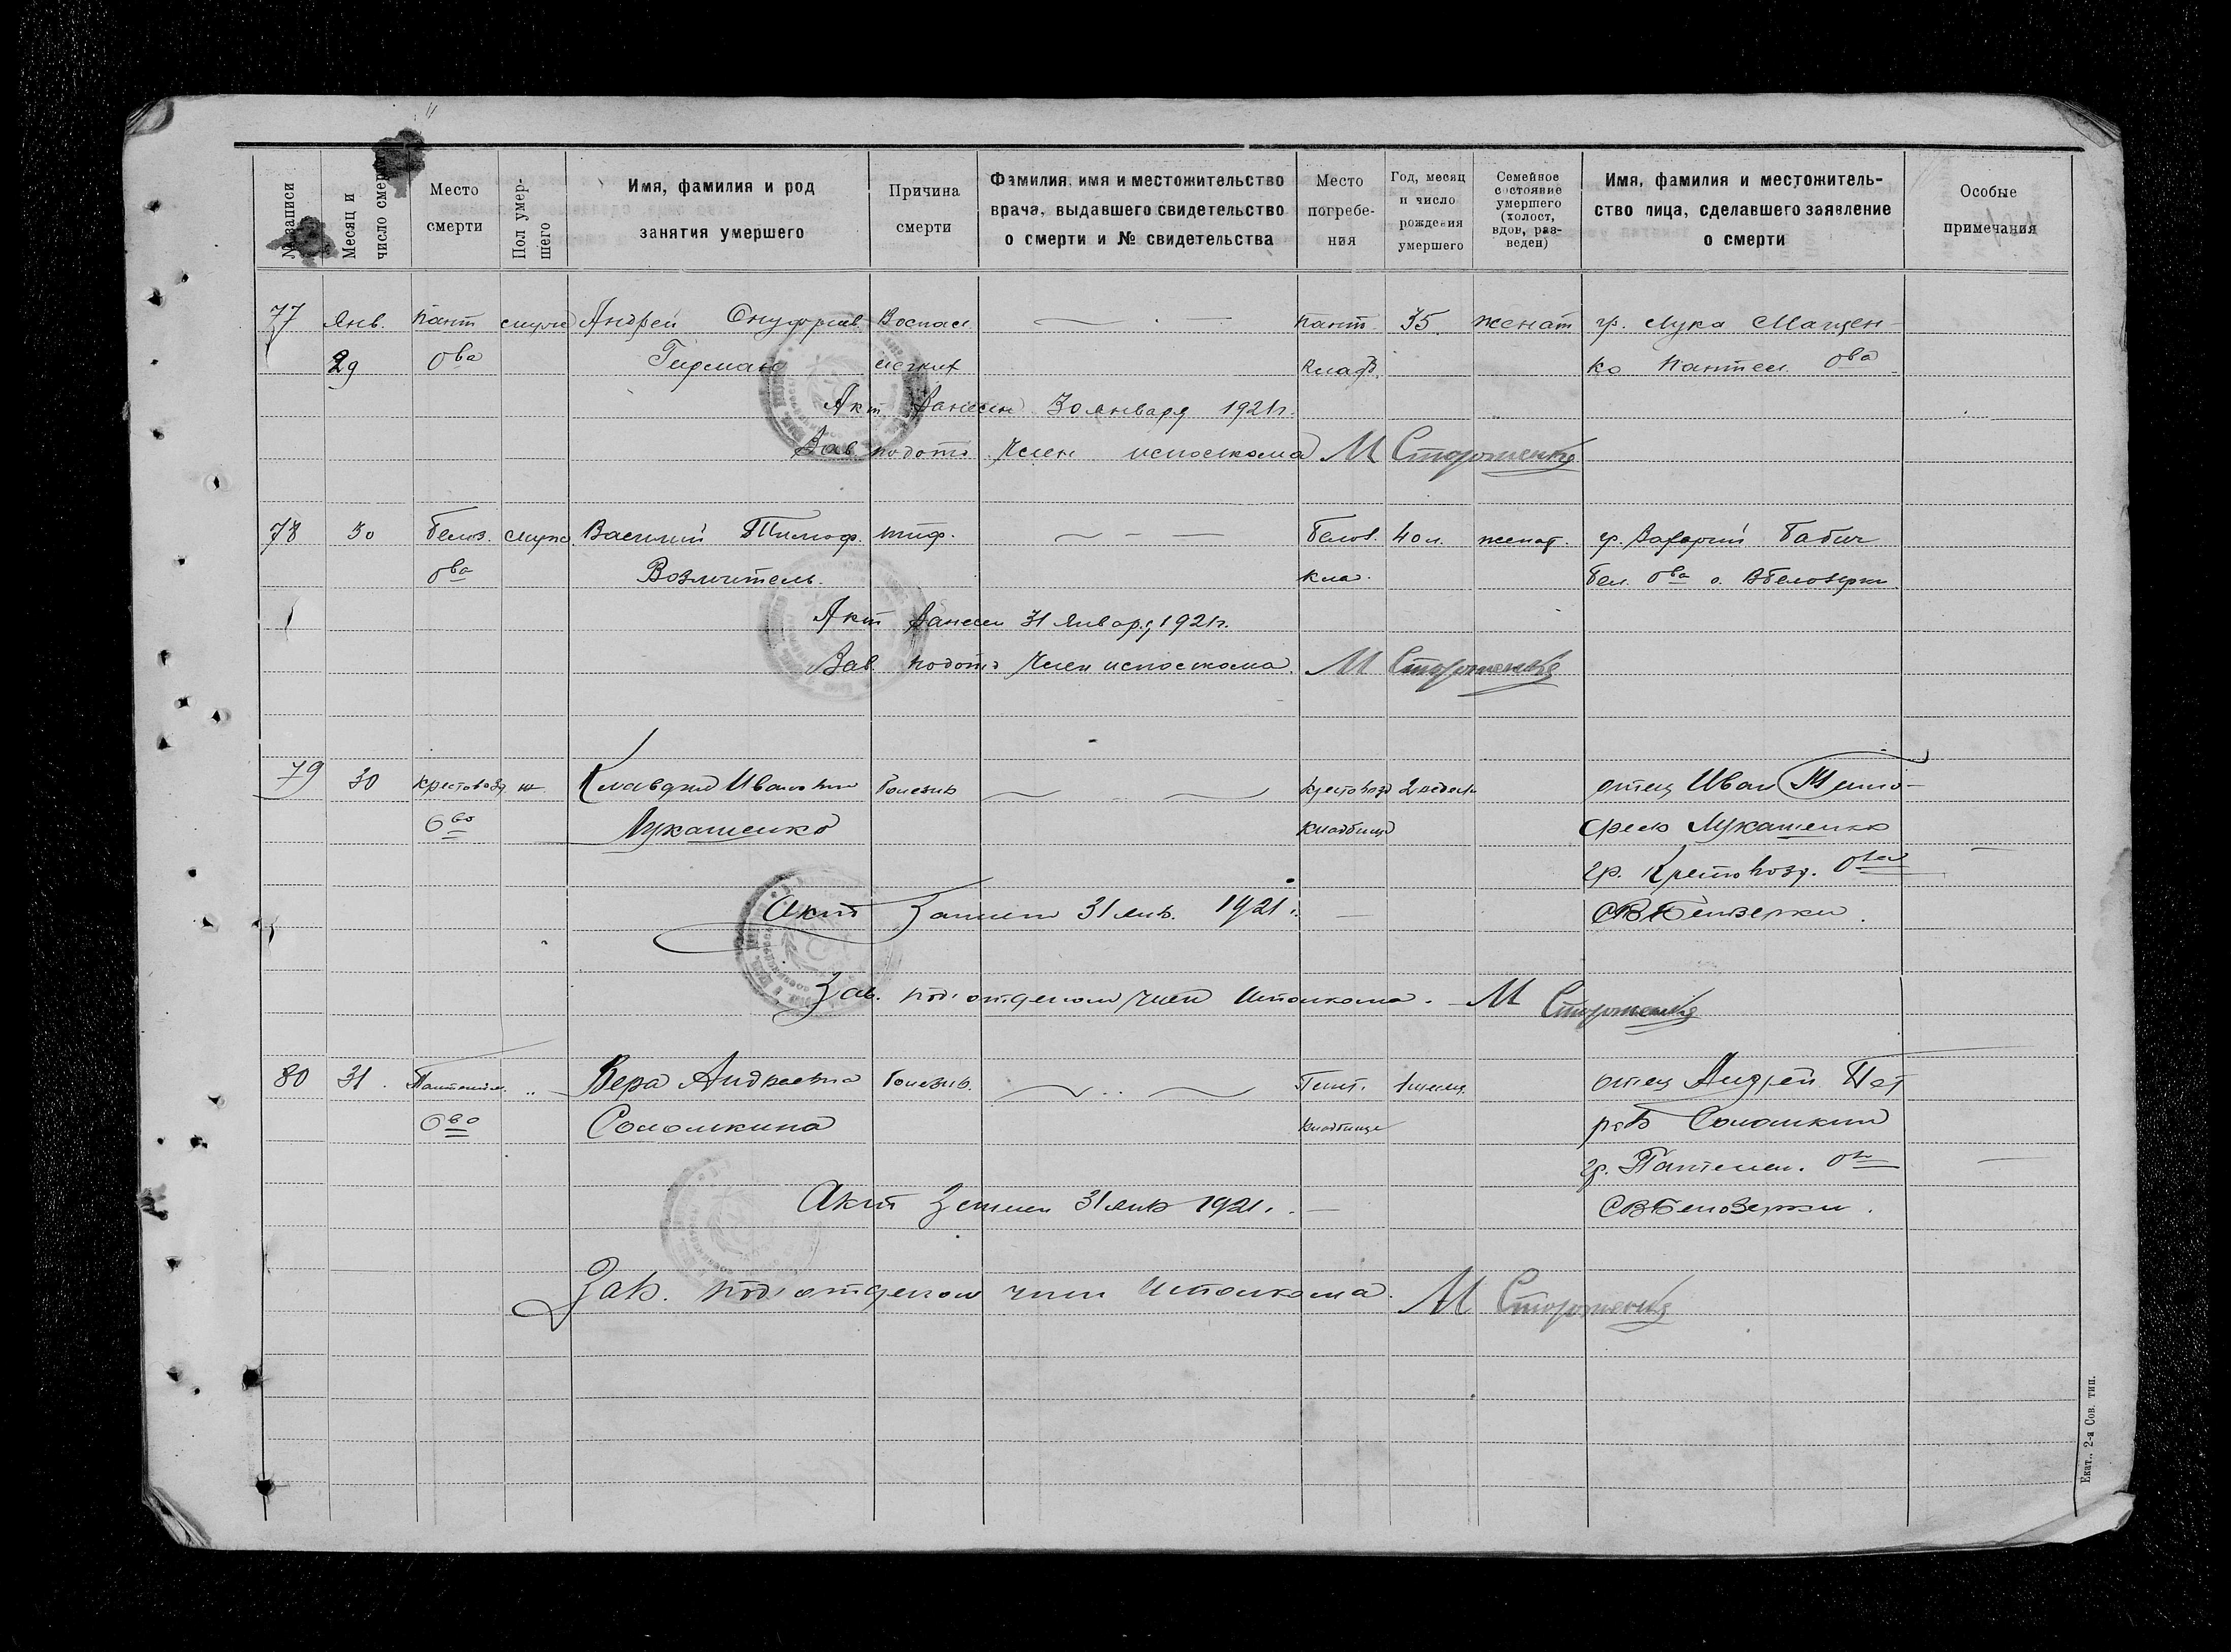 № записи
Месяц и число смерти
Место смерти
Пол умершего
Имя, фамилия и род занятия умершего
Причина смерти
Фамилия, имя и местожительство врача, выдавшего свидетельство о смерти и № свидетельства
Место погребе-ния
Год, месяц и число рождения умершего
Семейное состояние умершего (холост, вдов, раз-веден)
Имя, фамилия и местожитель-ство лица, сделавшего заявление о смерти
Особые примечания
77 Янв. Пант Андрей Онуфриев. Воспал. Пант. 35. женат гр. Лука Мащен-
29 Ова Гирман легких Клад. ко Пантел. Ова
Акт Занесен 30 января 1921 г.
Зав. подотд Член исполкома М Стороженко
78 30 Белоз. Василий Тимоф. тиф. Белоз. 40 л. женат. гр. Бабич
Ова Возлитель. кла. Бел. Ова с. ВБелозерки
Акт Занесен 31 Января 1921 г.
Зав. подотд Член исполкома М Стороженко
79 30 Крестовозд. ж. Клавдия Ивановна Болезнь Крестовозд 2 недели отец Иван Тимо-
Ово Лукашенко кладбище феев Лукашенко
гр. Крестовозд. Ова
Акт Занесен 31 янв. 1921 г. СВБелозерки.
Зав. подотделом член Исполкома. М Стороженко
80 31. Пантелейм. „ Вера Андреевна Болезнь. Пант. 1 месяц. отец Андрей Пет
Ово Соломкина кладбище ров Соломкин
гр. Пантелеи. Ова
Акт Занесен 31 янв 1921 г. СВБелозерки.
Зав. подотделом член Исполкома. М Стороженко
Екат., 2-я Сов. тип.